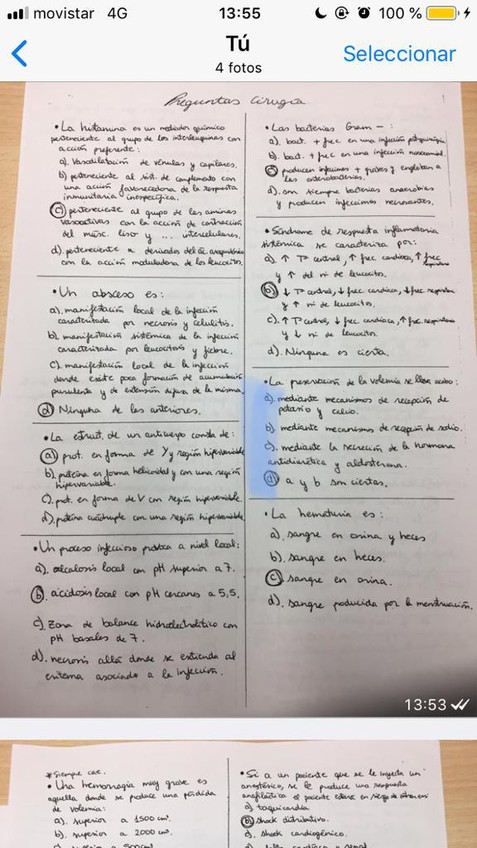 movistar 4G 13:55 100 %
Tú
4 fotos
Seleccionar
Preguntas Cirugía
• La histamina es un mediador químico
perteneciente al grupo de las interleuquinas con
acción preferente:
a). Vasodilatación de vénulas y capilares.
b). perteneciente al sist. de complemento con
una acción favorecedora de la respuesta
inmunitaria inespecífica.
c) perteneciente al grupo de las aminas
vasoactivas con la acción de contracción
del músc. liso y ... intercelulares.
d). perteneciente a derivados del ác. araquidónico
con la acción moduladora de los leucocitos.
• Un absceso es:
a). manifestación local de la infección
caracterizada por necrosis y celulitis.
b). manifestación sistémica de la infección
caracterizada por leucocitosis y fiebre.
c). manifestación local de la infección
donde existe poca formación de acumulación
purulenta y de extensión difusa de la misma.
d) Ninguna de las anteriores.
• La estruct. de un anticuerpo consta de:
a) prot. en forma de Y y región hipervariable
b). proteína en forma helicoidal y con una región
hipervariable.
c). prot. en forma de V con región hipervariable.
d). proteína cuádruple con una región hipervariable
• Un proceso infeccioso provoca a nivel local:
a). alcalosis local con pH superior a 7.
b). acidosis local con pH cercano a 5,5.
c). Zona de balance hidroelectrolítico con
pH basales de 7.
d). necrosis allá donde se extienda el
eritema asociado a la infección.
• Las bacterias Gram - :
a). bact. + frec en una infección postquirúrgica
b). bact. + frec en una infección nosocomial.
c) producen infecciones + graves y engloban a
las enterobacterias.
d). son siempre bacterias anaerobias
y producen infecciones necrosantes.
• Síndrome de respuesta inflamatoria
sistémica se caracteriza por:
a). ↑ Tª central, ↑ frec cardiaca, ↑ frec respiratoria
y ↑ del nº de leucocitos.
b). ↓ Tª central, ↓ frec cardiaca, ↓ frec respiratoria
y ↑ nº de leucocitos.
c). ↑ Tª central, ↓ frec cardiaca, ↑ frec. respiratoria
y ↓ nº de leucocitos
d). Ninguna es cierta.
• La preservación de la volemia se lleva a cabo:
a). mediante mecanismos de recepción de
potasio y calcio.
b). mediante mecanismos de recepción de sodio.
c). mediante la secreción de la hormona
antidiurética y aldosterona.
d) a y b son ciertas.
• La hematuria es:
a). sangre en orina y heces
b). sangre en heces.
c) sangre en orina.
d). sangre producida por la menstruación.
13:53
* Siempre cae.
• Una hemorragia muy grave es
aquella donde se produce una pérdida
de volemia:
a). superior a 1500 cm³.
b). superior a 2000 cm³.
c). superior a 500 cm³
• Si a un paciente que se le inyecta un
anestésico, se le produce una respuesta
anafiláctica el paciente estará en riesgo de
a) taquicardia
b) shock distributivo.
c). shock cardiogénico.